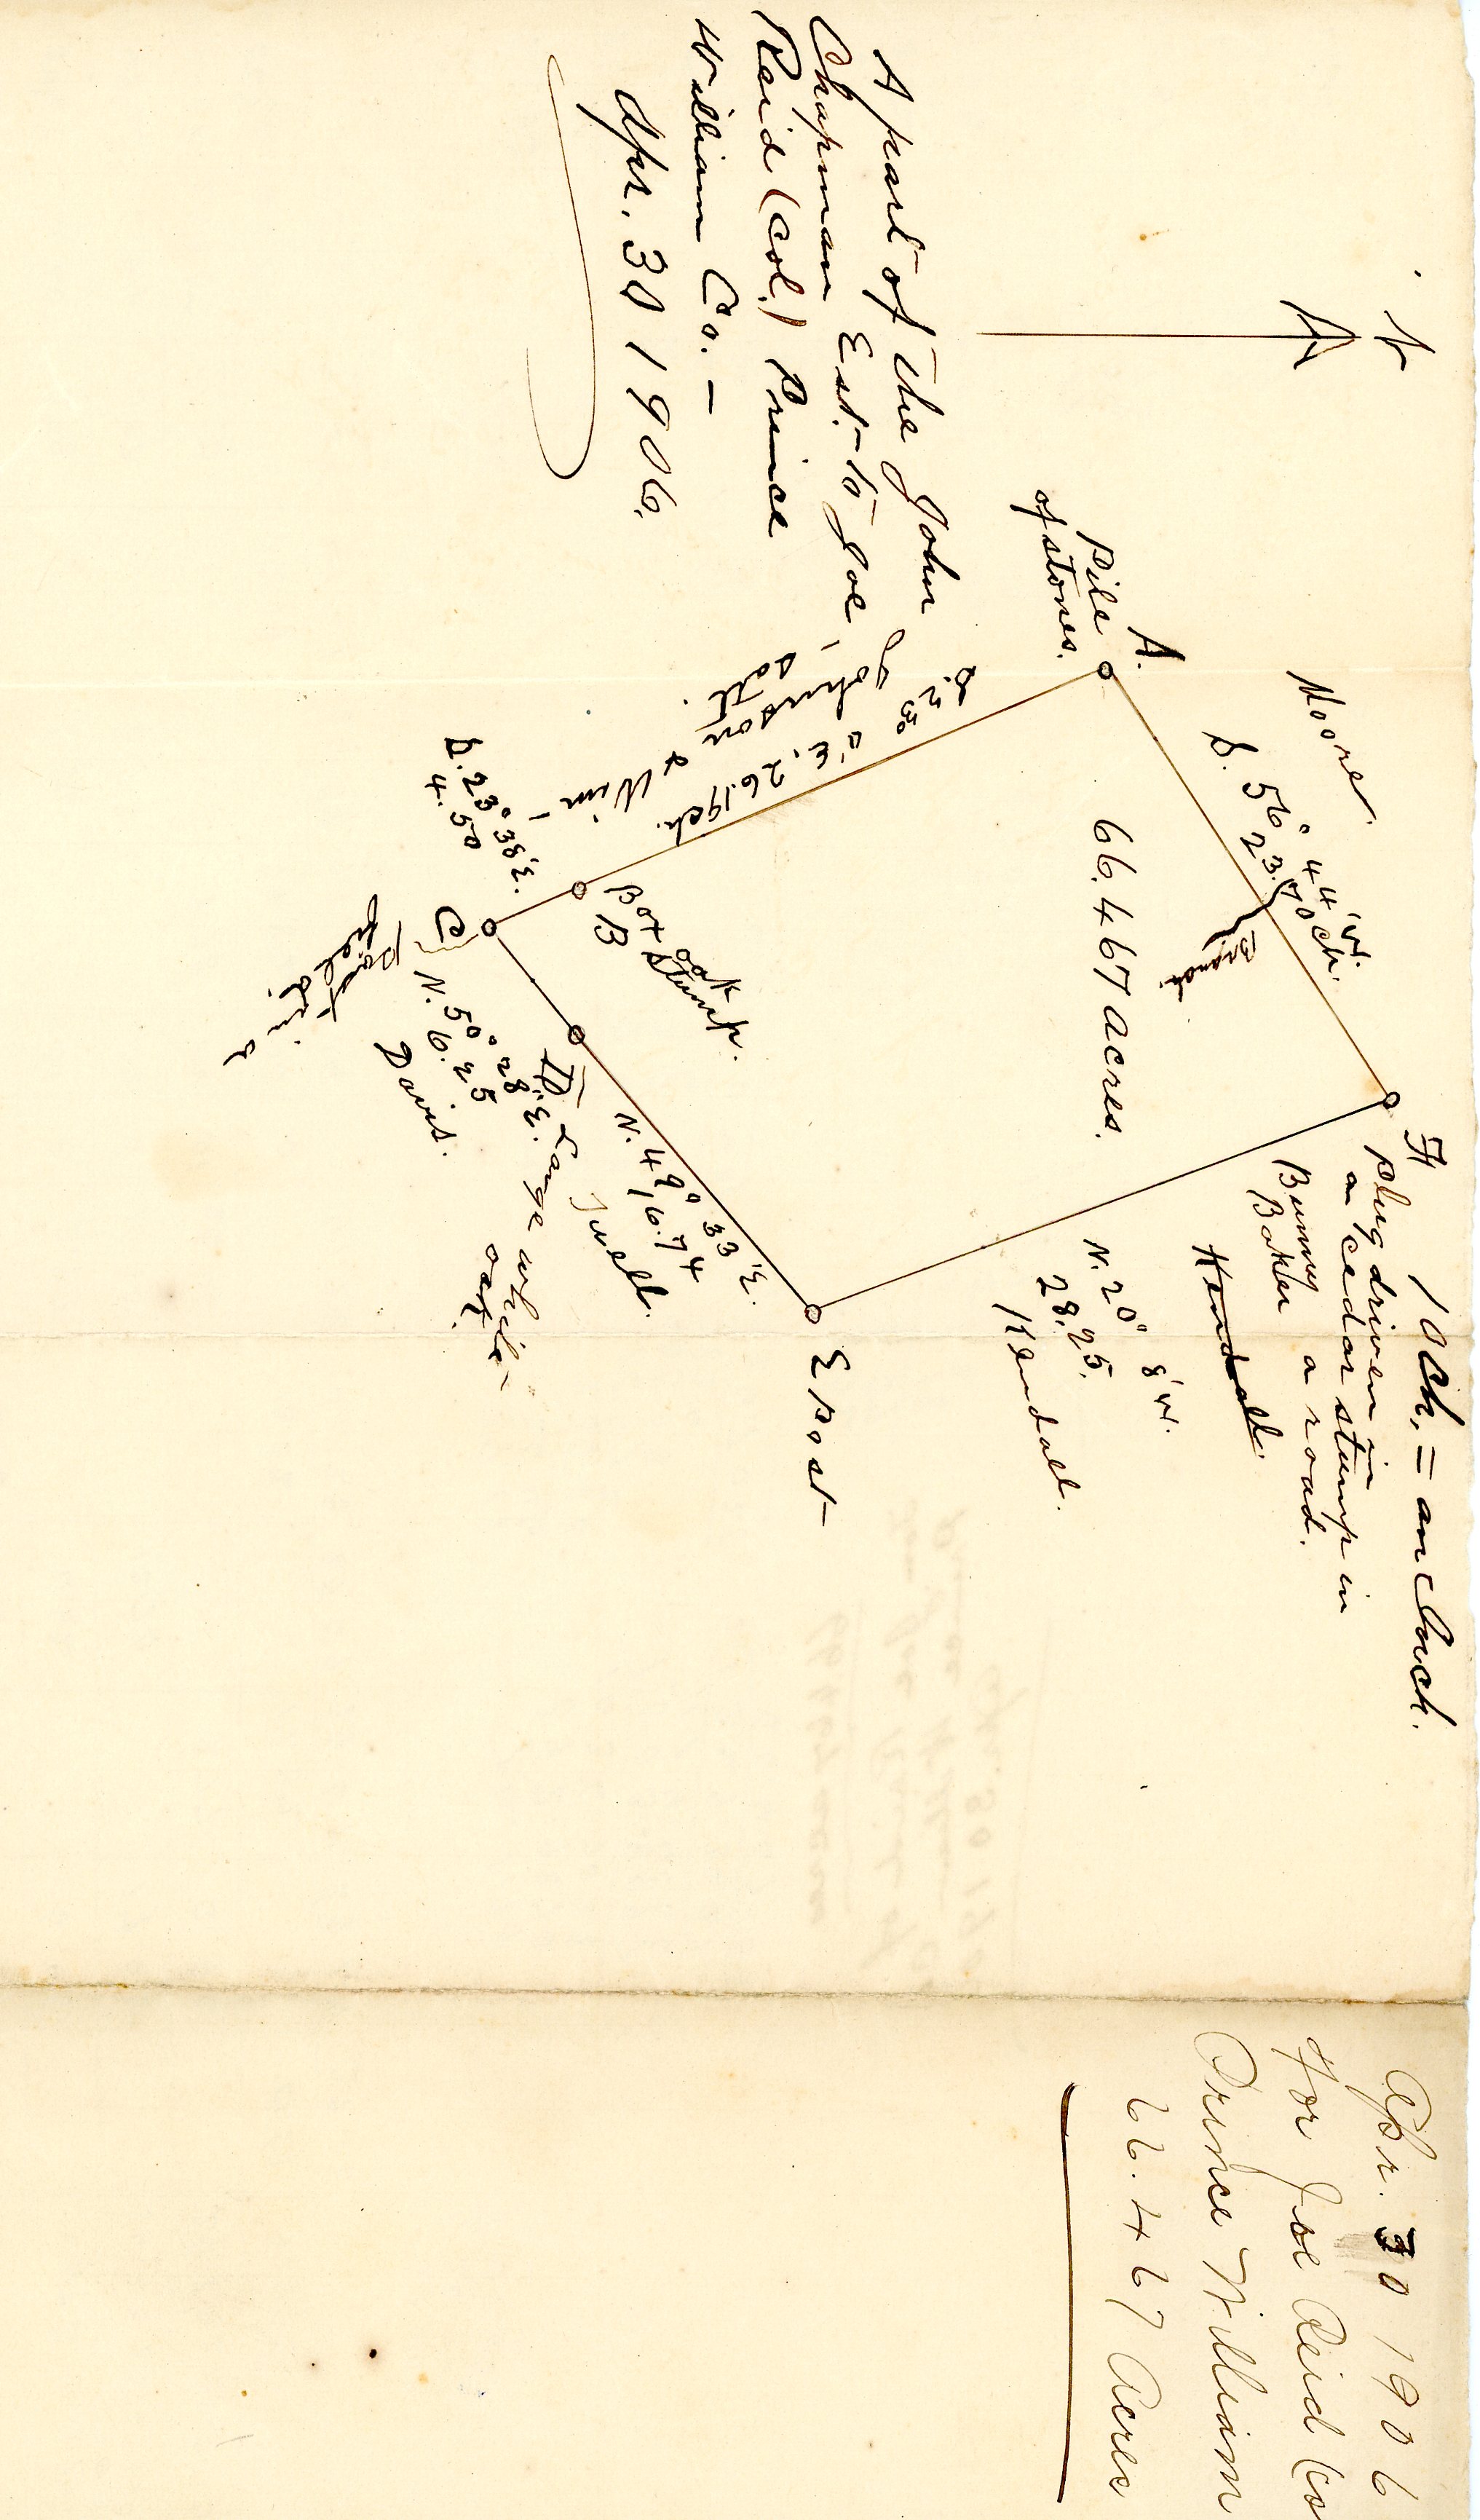 N
10 ch. = an inch.
F
plug driven in
a cedar stump in
Bunny a road.
Baker
Kendall
Moore.
S. 56° 44' W.
23.70 ch.
Branch
A.
Pile
of stones.
66.467 acres.
N. 20° 8' W.
28.25.
Kendall.
E Post
S. 23°
E. 26.19 ch.
Johnson & Wm
Box oak
B stump.
N. 49° 33' E.
16.74
D Large white
oak.
S. 23° 38' E.
4.50
C
post in a
field.
N. 50° 28' E.
6.25
Davis.
A part of the John
Chapman Est. to Joe
Reid (Col.) Prince
William Co. —
Apr. 30 1906.
Apr. 30 1906
For Joe Reid (Co
Prince William
66.467 Acres